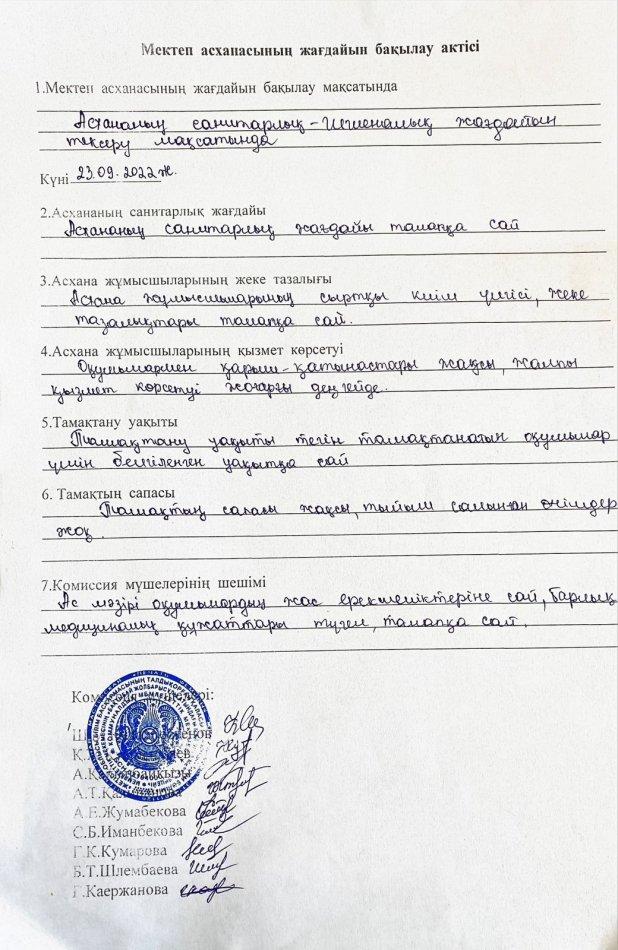 Мектеп асханасының жағдайын бақылау актісі
1.Мектеп асханасының жағдайын бақылау мақсатында
Асхананың санитарлық-гигиеналық жағдайын
тексеру мақсатында
Күні 23.09.2022ж.
2.Асхананың санитарлық жағдайы
Асхананың санитарлық жағдайы талапқа сай
3.Асхана жұмысшыларының жеке тазалығы
Асхана жұмысшыларының сыртқы киім үлгісі, жеке
тазалықтары талапқа сай.
4.Асхана жұмысшыларының қызмет көрсетуі
Оқушылармен қарым-қатынастары жақсы, жалпы
қызмет көрсетуі жоғарғы деңгейде.
5.Тамақтану уақыты
Тамақтану уақыты тегін тамақтанатын оқушылар
үшін белгіленген уақытқа сай
6. Тамақтың сапасы
Тамақтың сапасы жақсы, тыйым салынған өнімдер
жоқ.
7.Комиссия мүшелерінің шешімі
Ас мәзірі оқушылардың жас ерекшеліктеріне сай, барлық
медициналық құжаттары түгел, талапқа сай.
А.Е.Жумабекова
С.Б.Иманбекова
Г.К.Кумарова
Б.Т.Шлембаева
Г.Каержанова